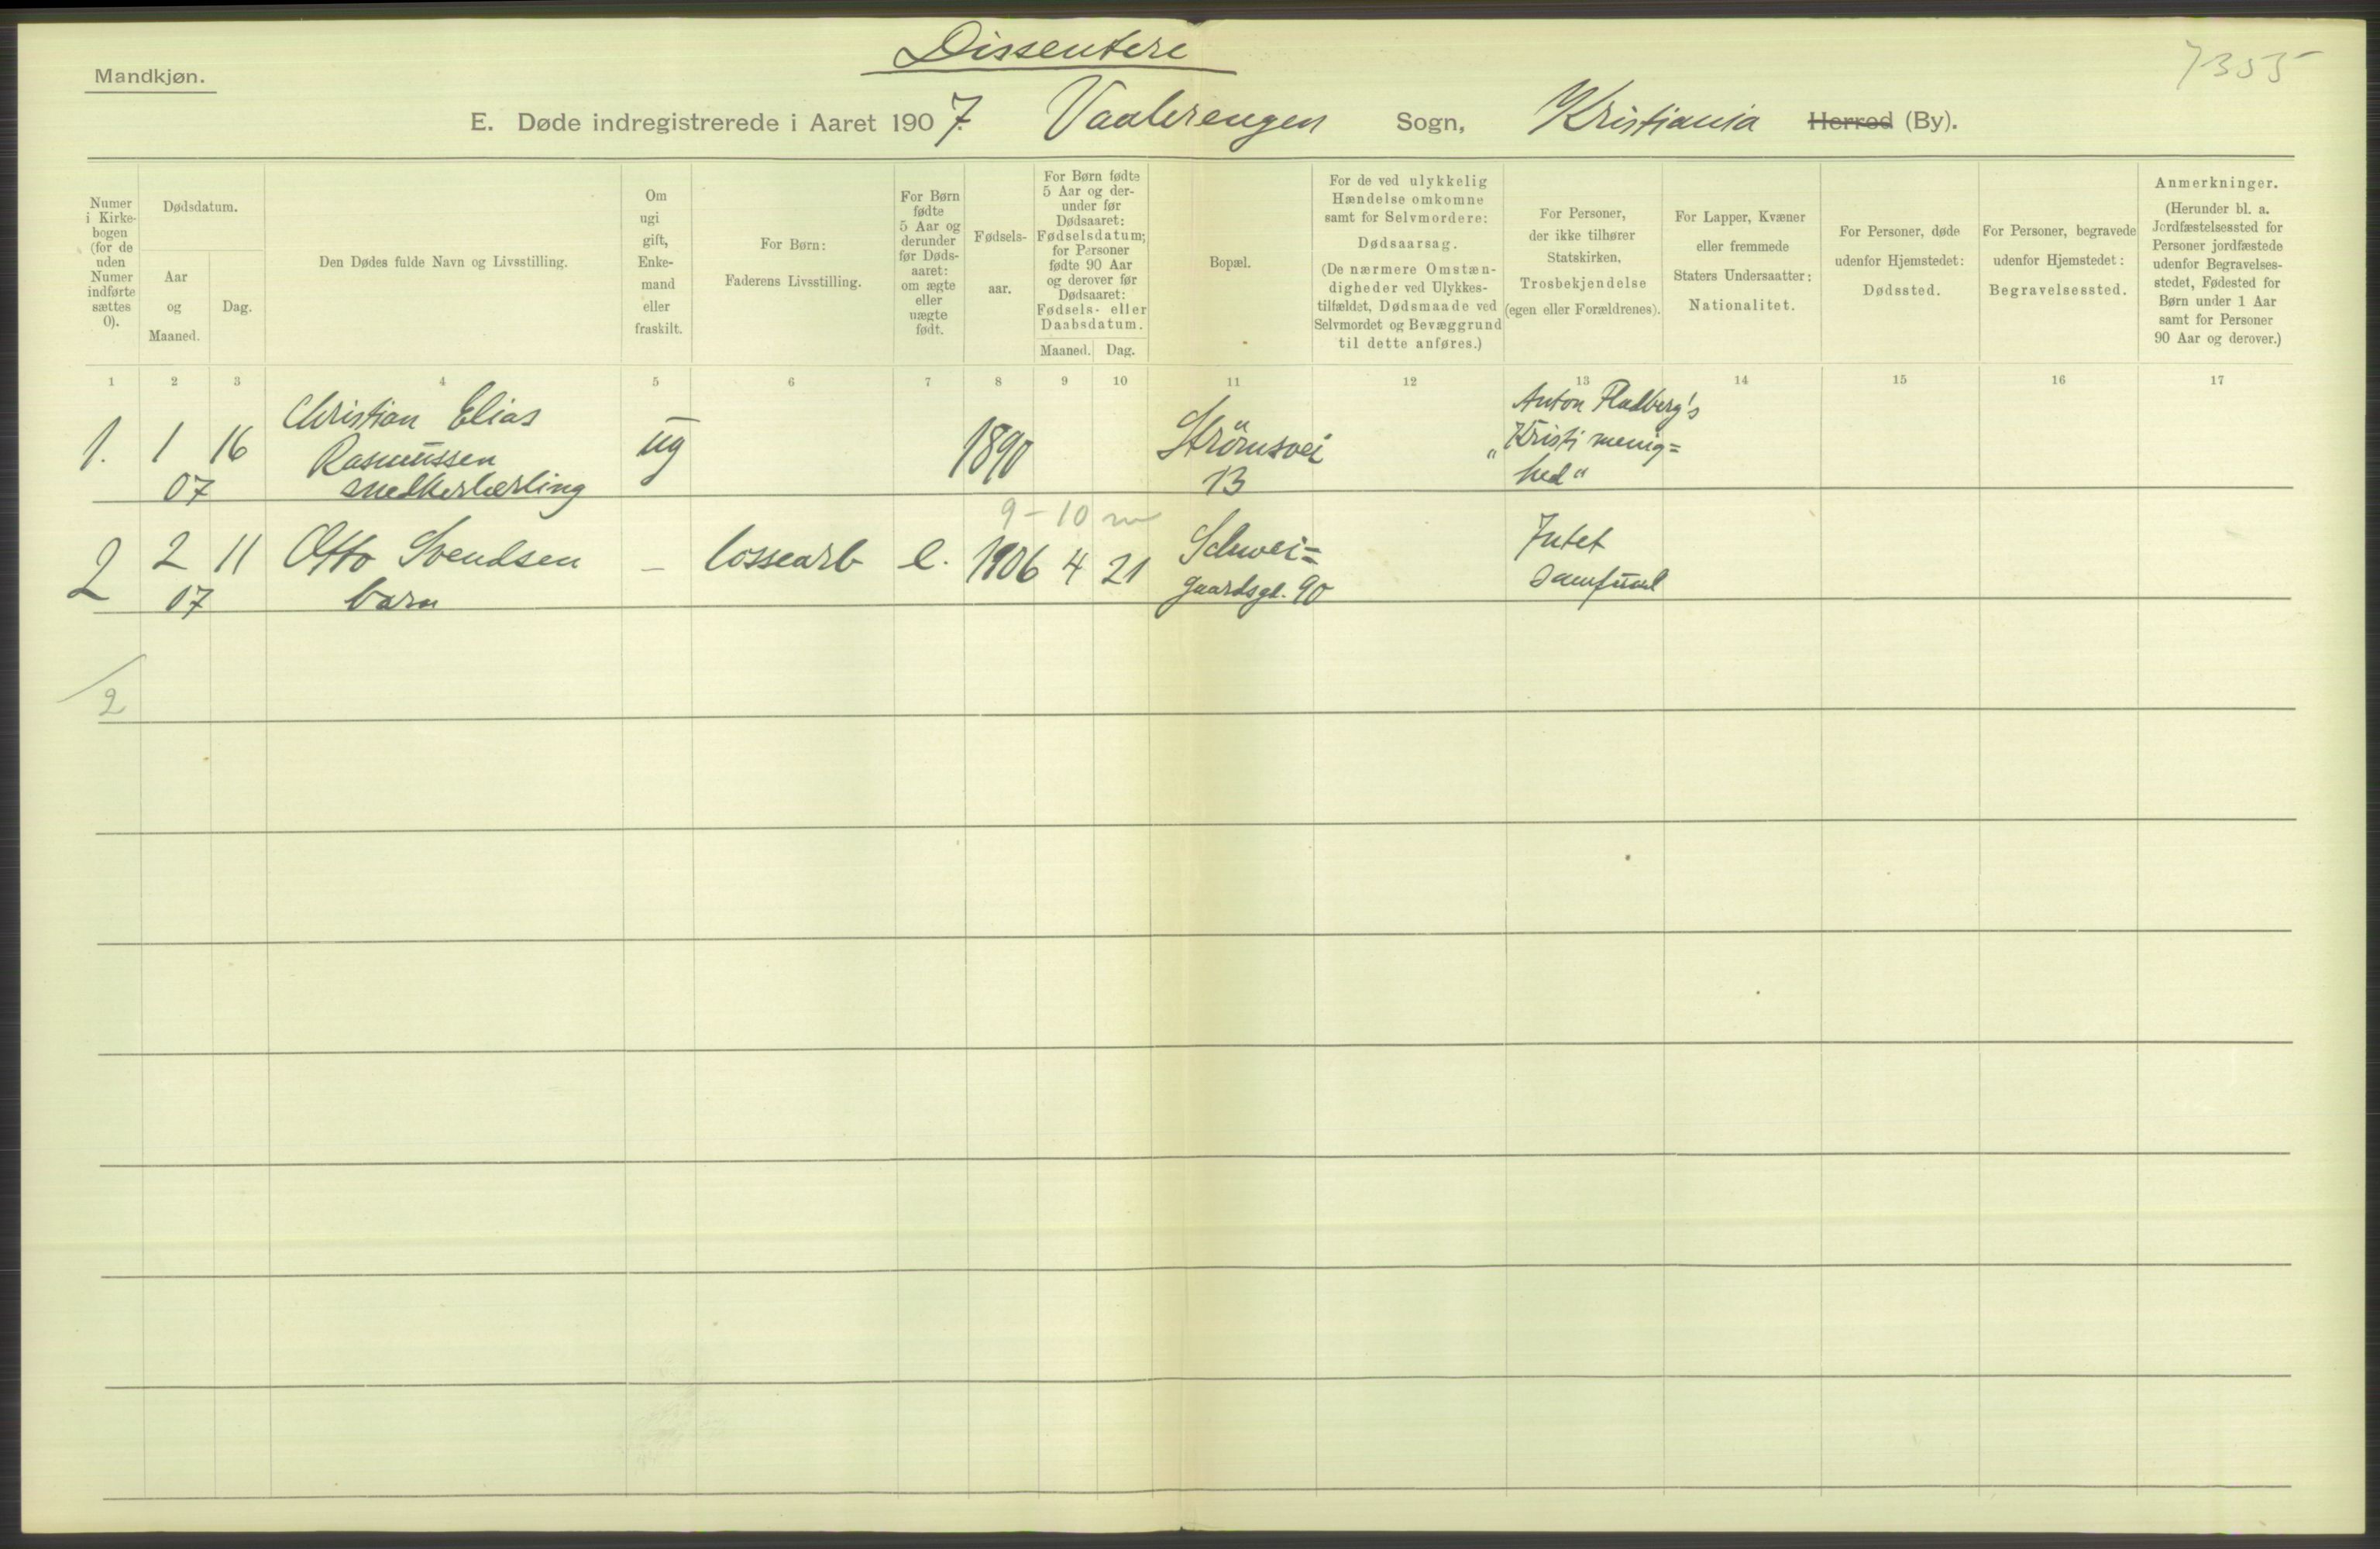 Dissentere
7355
Mandkjøn.
E. Døde indregistrerede i Aaret 1907. Vaalerengen Sogn, Kristiania Herred (By).
Numer
i Kirke-
bogen
(for de
uden
Numer
indførte
sættes
0).
Dødsdatum.
Aar
og
Maaned.
Dag.
Den Dødes fulde Navn og Livsstilling.
Om
ugi
gift,
Enke-
mand
eller
fraskilt.
For Børn:
Faderens Livsstilling.
For Børn
fødte
5 Aar og
derunder
før Døds-
aaret:
om ægte
eller
uægte
født.
Fødsels-
aar.
For Børn fødte
5 Aar og der-
under før
Dødsaaret:
Fødselsdatum;
for Personer
fødte 90 Aar
og derover før
Dødsaaret:
Fødsels- eller
Daabsdatum.
Maaned. Dag.
Bopæl.
For de ved ulykkelig
Hændelse omkomne
samt for Selvmordere:
Dødsaarsag.
(De nærmere Omstæn-
digheder ved Ulykkes-
tilfældet, Dødsmaade ved
Selvmordet og Bevæggrund
til dette anføres.)
For Personer,
der ikke tilhører
Statskirken,
Trosbekjendelse
(egen eller Forældrenes).
For Lapper, Kvæner
eller fremmede
Staters Undersaatter:
Nationalitet.
For Personer, døde
udenfor Hjemstedet:
Dødssted.
For Personer, begravede
udenfor Hjemstedet:
Begravelsessted.
Anmerkninger.
(Herunder bl. a.
Jordfæstelsessted for
Personer jordfæstede
udenfor Begravelses-
stedet, Fødested for
Børn under 1 Aar
samt for Personer
90 Aar og derover.)
1 2 3 4 5 6 7 8 9 10 11 12 13 14 15 16 17
1. 1 16
07
Christian Elias
Rasmussen
snedkerlærling
ug
1890
Strömsvei
13
Anton Fladberg's
"Kristi menig=
hed"
9-10 m
2 2 11
07
Otto Svendsen
barn
–
lossearb
e.
1906 4 21
Schwei=
gaardsgt. 90
Intet
samfund
2